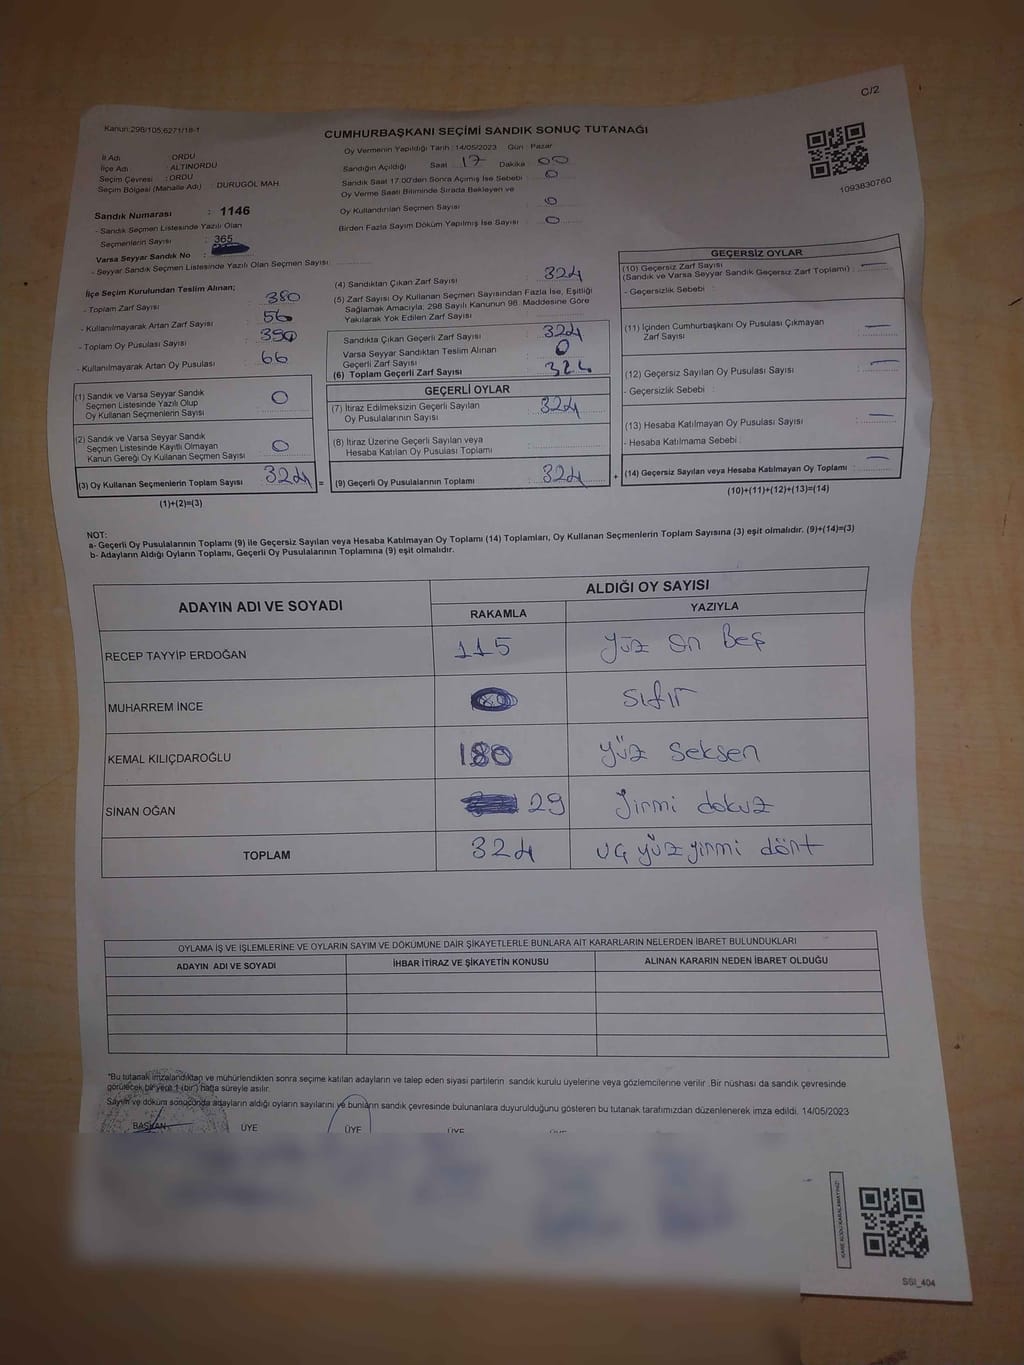 C/2
Kanun:298/105,6271/18-1
CUMHURBAŞKANI SEÇİMİ SANDIK SONUÇ TUTANAĞI
1093830760
İl Adı : ORDU
İlçe Adı : ALTINORDU
Seçim Çevresi : ORDU
Seçim Bölgesi (Mahalle Adı) : DURUGÖL MAH.
Oy Vermenin Yapıldığı Tarih : 14/05/2023 Gün : Pazar
Sandığın Açıldığı Saat : 17 Dakika : 00
Sandık Saat 17:00'den Sonra Açımış İse Sebebi : 0
Oy Verme Saati Bitiminde Sırada Bekleyen ve
Oy Kullandırılan Seçmen Sayısı : 0
Birden Fazla Sayım Döküm Yapılmış İse Sayısı : 0
Sandık Numarası : 1146
- Sandık Seçmen Listesinde Yazılı Olan
Seçmenlerin Sayısı : 365
Varsa Seyyar Sandık No :
- Seyyar Sandık Seçmen Listesinde Yazılı Olan Seçmen Sayısı :
İlçe Seçim Kurulundan Teslim Alınan;
- Toplam Zarf Sayısı : 380
- Kullanılmayarak Artan Zarf Sayısı : 56
- Toplam Oy Pusulası Sayısı : 390
- Kullanılmayarak Artan Oy Pusulası : 66
(1) Sandık ve Varsa Seyyar Sandık
Seçmen Listesinde Yazılı Olup
Oy Kullanan Seçmenlerin Sayısı : 0
(2) Sandık ve Varsa Seyyar Sandık
Seçmen Listesinde Kayıtlı Olmayan
Kanun Gereği Oy Kullanan Seçmen Sayısı : 0
(3) Oy Kullanan Seçmenlerin Toplam Sayısı : 324 =
(1)+(2)=(3)
(4) Sandıktan Çıkan Zarf Sayısı : 324
(5) Zarf Sayısı Oy Kullanan Seçmen Sayısından Fazla İse, Eşitliği
Sağlamak Amacıyla; 298 Sayılı Kanunun 98. Maddesine Göre
Yakılarak Yok Edilen Zarf Sayısı :
Sandıkta Çıkan Geçerli Zarf Sayısı : 324
Varsa Seyyar Sandıktan Teslim Alınan
Geçerli Zarf Sayısı : 0
(6) Toplam Geçerli Zarf Sayısı : 324
GEÇERLİ OYLAR
(7) İtiraz Edilmeksizin Geçerli Sayılan
Oy Pusulalarının Sayısı : 324
(8) İtiraz Üzerine Geçerli Sayılan veya
Hesaba Katılan Oy Pusulası Toplamı :
(9) Geçerli Oy Pusulalarının Toplamı : 324 +
GEÇERSİZ OYLAR
(10) Geçersiz Zarf Sayısı
(Sandık ve Varsa Seyyar Sandık Geçersiz Zarf Toplamı) : —
- Geçersizlik Sebebi :
(11) İçinden Cumhurbaşkanı Oy Pusulası Çıkmayan
Zarf Sayısı : —
(12) Geçersiz Sayılan Oy Pusulası Sayısı : —
- Geçersizlik Sebebi :
(13) Hesaba Katılmayan Oy Pusulası Sayısı : —
- Hesaba Katılmama Sebebi :
(14) Geçersiz Sayılan veya Hesaba Katılmayan Oy Toplamı : —
(10)+(11)+(12)+(13)=(14)
NOT:
a- Geçerli Oy Pusulalarının Toplamı (9) ile Geçersiz Sayılan veya Hesaba Katılmayan Oy Toplamı (14) Toplamları, Oy Kullanan Seçmenlerin Toplam Sayısına (3) eşit olmalıdır. (9)+(14)=(3)
b- Adayların Aldığı Oyların Toplamı, Geçerli Oy Pusulalarının Toplamına (9) eşit olmalıdır.
ADAYIN ADI VE SOYADI ALDIĞI OY SAYISI
RAKAMLA YAZIYLA
RECEP TAYYİP ERDOĞAN 115 yüz on Beş
MUHARREM İNCE sıfır
KEMAL KILIÇDAROĞLU 180 yüz seksen
SİNAN OĞAN 29 yirmi dokuz
TOPLAM 324 üç yüz yirmi dört
OYLAMA İŞ VE İŞLEMLERİNE VE OYLARIN SAYIM VE DÖKÜMÜNE DAİR ŞİKAYETLERLE BUNLARA AİT KARARLARIN NELERDEN İBARET BULUNDUKLARI
ADAYIN ADI VE SOYADI İHBAR İTİRAZ VE ŞİKAYETİN KONUSU ALINAN KARARIN NEDEN İBARET OLDUĞU
"Bu tutanak imzalandıktan ve mühürlendikten sonra seçime katılan adayların ve talep eden siyasi partilerin sandık kurulu üyelerine veya gözlemcilerine verilir. Bir nüshası da sandık çevresinde
görülecek bir yere 1 (bir) hafta süreyle asılır.
Sayım ve döküm sonucunda adayların aldığı oyların sayılarını ve bunların sandık çevresinde bulunanlara duyurulduğunu gösteren bu tutanak tarafımızdan düzenlenerek imza edildi. 14/05/2023
BAŞKAN ÜYE ÜYE ÜYE ÜYE
KARE KODU KARALAMAYINIZ!
SSI_404